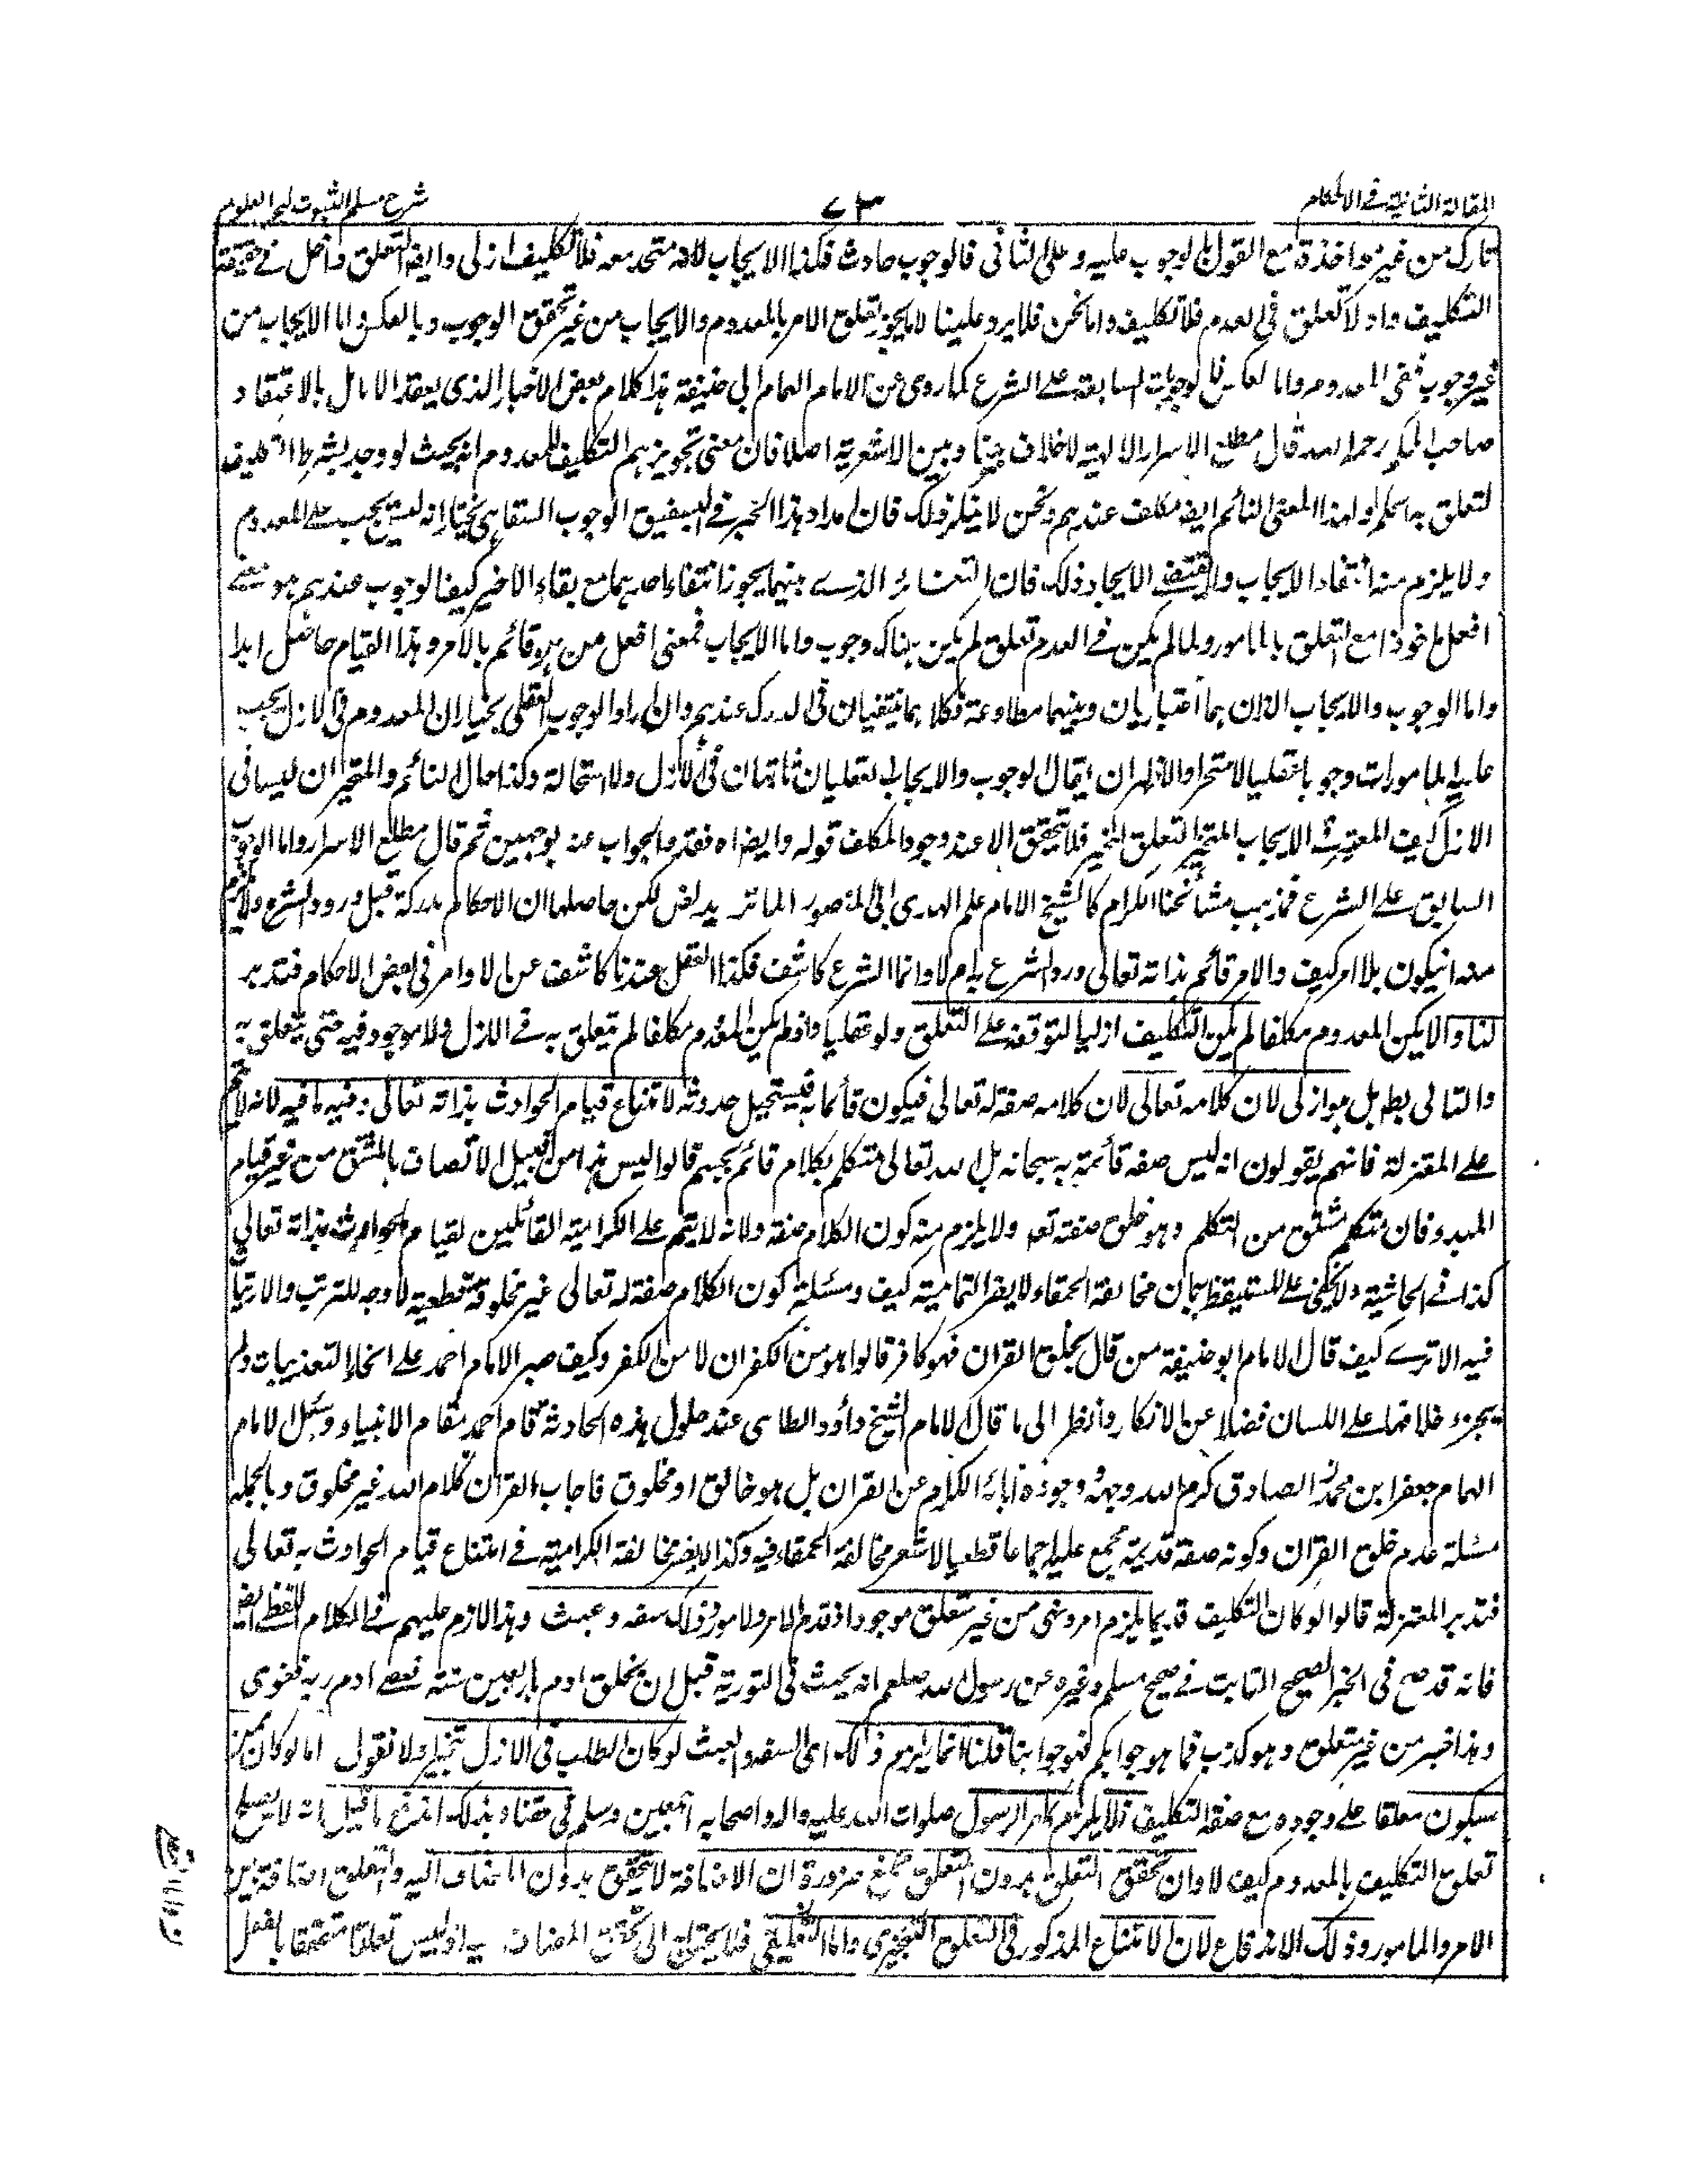 المقالة الثانية في الاحكام
٧٣
شرح مسلم الثبوت لبحر العلوم
تارك من غير مواخذة مع القول بالوجوب عليه وعلى الثاني فالوجوب حادث فكذا الايجاب لانه متحد معه فلا تكليف ازلي وايضا التعلق داخل في حقيقة
التكليف واذ لا تعلق في العدم فلا تكليف واما نحن فلا يرد علينا لانا نجوز تعلق الامر بالمعدوم والايجاب من غير تحقق الوجوب وبالعكس واما الايجاب من
غير وجوب ففي المعدوم واما العكس فالوجوبات السابقة على الشرع كما روى عن الامام الهمام ابي حنيفة هذا كلام بعض الاخبار الذي يعقد الانامل بالاعتقاد
صاحب المحكم رحمه الله قال مطلع الاسرار الالهية لا خلاف بيننا وبين الاشعرية اصلا فان معنى تجويزهم التكليف للمعدوم انه بحيث لو وجد بشرط التكليف
لتعلق به الحكم ولهذا المعنى النائم ايضا مكلف عندهم ونحن لا ننكر ذلك فان اراد هذا الخبر في الوجوب نختار انه ليس يجب على المعدوم
ولا يلزم منه انتفاء الايجاب ولا يقتضي الايجاد ذلك فان التغاير الذي بينهما يجوز انتفاء احدهما مع بقاء الاخر كيف الوجوب عندهم هو معنى
افعل ماخوذا مع التعلق بالمامور ولما لم يكن في العدم تعلق لم يكن هناك وجوب واما الايجاب فمعنى افعل من قائم بالامر وهذا القيام حاصل ابدا
واما الوجوب والايجاب اللذان هما اعتباريان وبينهما مطاوعة فكلاهما منتفيان في عندهم وان اراد الوجوب العقلي نختار ان المعدوم في الازل يجب
عليه المامورات وجوبا عقليا لا متحيزا والاظهر ان يقال الوجوب والايجاب العقليان ثابتان في الازل ولا استحالة وكذا حال النائم والمتحيزان ليسا في
الازل كيف المعتبر في الايجاب المتحيز التعلق فلا يتحقق الا عند وجود المكلف قوله وايضا اه فقد مر الجواب عنه بوجهين ثم قال مطلع الاسرار واما الوجوب
السابق على الشرع فمذهب مشائخنا الكرام كالشيخ الامام علم الهدى ابي المنصور الماتريدي لكن حاصلها ان الاحكام مدركة قبل ورود الشرع ولا يلزم
منه ان يكون بلا امر كيف والامر قائم بذاته تعالى ورد الشرع به ام لا وانما الشرع كاشف فكذا العقل عندنا كاشف عن الاوامر في بعض الاحكام فتدبر
لنا والا يكن المعدوم مكلفا لم يكن التكليف ازليا لتوقفه على التعلق ولو عقليا واذ لم يكن المعدوم مكلفا لم يتعلق به في الازل ولا موجود فيه حتى يتعلق به
والتالي بط بل هو ازلي لان كلامه تعالى لان كلامه صفة له تعالى فيكون قائما به فيستحيل حدوثه لامتناع قيام الحوادث بذاته تعالى وفيه ما فيه لانه لا يتم
على المعتزلة فانهم يقولون انه ليس صفة قائمة به سبحانه بل الله تعالى متكلم بكلام قائم بجسم قالوا ليس هذا من قبيل الاتصاف بالمشتق من غير قيام
المبدء فان متكلم مشتق من التكلم وهو خلق صفة تعه ولا يلزم منه كون الكلام صفة ولانه لا يتم على الكرامية القائلين لقيام الحوادث بذاته تعالى
كذا في الحاشية ولا يخفى على المستيقظ بان مخالفة الحمقاء لا يضر التمامية كيف ومسئلة كون الكلام صفة له تعالى غير مخلوقة قطعية لا وجه للترتب والارتياب
فيه الا ترى كيف قال الامام ابو حنيفة من قال بخلق القران فهو كافر قالوا هو من الكفران لا من الكفر وكيف صبر الامام احمد على انحاء التعذيبات ولم
يجزء خلافها على اللسان فضلا عن الانكار وانظر الى ما قال الامام الشيخ داؤد الطاسى عند حلول هذه الحادثة قام احمد مقام الانبياء وسئل الامام
الهمام جعفر ابن محمد الصادق كرم الله وجهه ووجوه ابائه الكرام عن القران بل هو خالق او مخلوق فاجاب القران كلام الله غير مخلوق وبالجملة
مسئلة عدم خلق القران وكونه صفة قديمة مجمع عليه اجماعا قطعيا لا تضر مخالفة الحمقاء فيه وكذا لا يضر مخالفة الكرامية في امتناع قيام الحوادث به تعالى
فتدبر المعتزلة قالوا لو كان التكليف قديما يلزم امر ونهي من غير متعلق موجود اذ قدم الامر ولا مامور وذلك سفه وعبث وهذا لازم عليهم في الكلام اللفظي ايضا
فانه قد صح في الخبر الصحيح الثابت في صحيح مسلم وغيره عن رسول الله صلعم انه يحدث في التورية قبل ان يخلق ادم باربعين سنة فعصى ادم ربه فغوى
وهذا خبر من غير متعلق وهو كذب فما هو جوابكم فهو جوابنا قلنا انما يلزم ذلك اي السفه والعبث لو كان الطلب في الازل تنجيزا ولا نقول اما لو كان ممن
سيكون معلقا على وجوده مع صفة التكليف فلا يلزم كامر الرسول صلوات الله عليه واله واصحابه اجمعين وسلم في حقنا وبذلك اندفع ما قيل انه لا يصلح
تعلق التكليف بالمعدوم كيف لا وان تحقق التعلق بدون المتعلق ممتنع ضرورة ان الاضافة لا يتحقق بدون المضاف اليه والتعلق اضافة بين
الامر والمامور وذلك الاندفاع لان الامتناع المذكور في التعلق التنجيزي واما التعليقي فلا يحتاج الى تحقق المضاف اليه اذ ليس تعلقا متحققا بالفعل